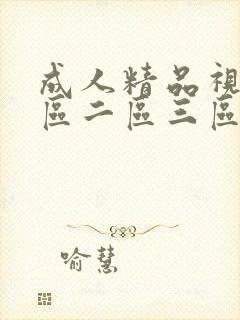 成人精品視
區二區三區
喻慧